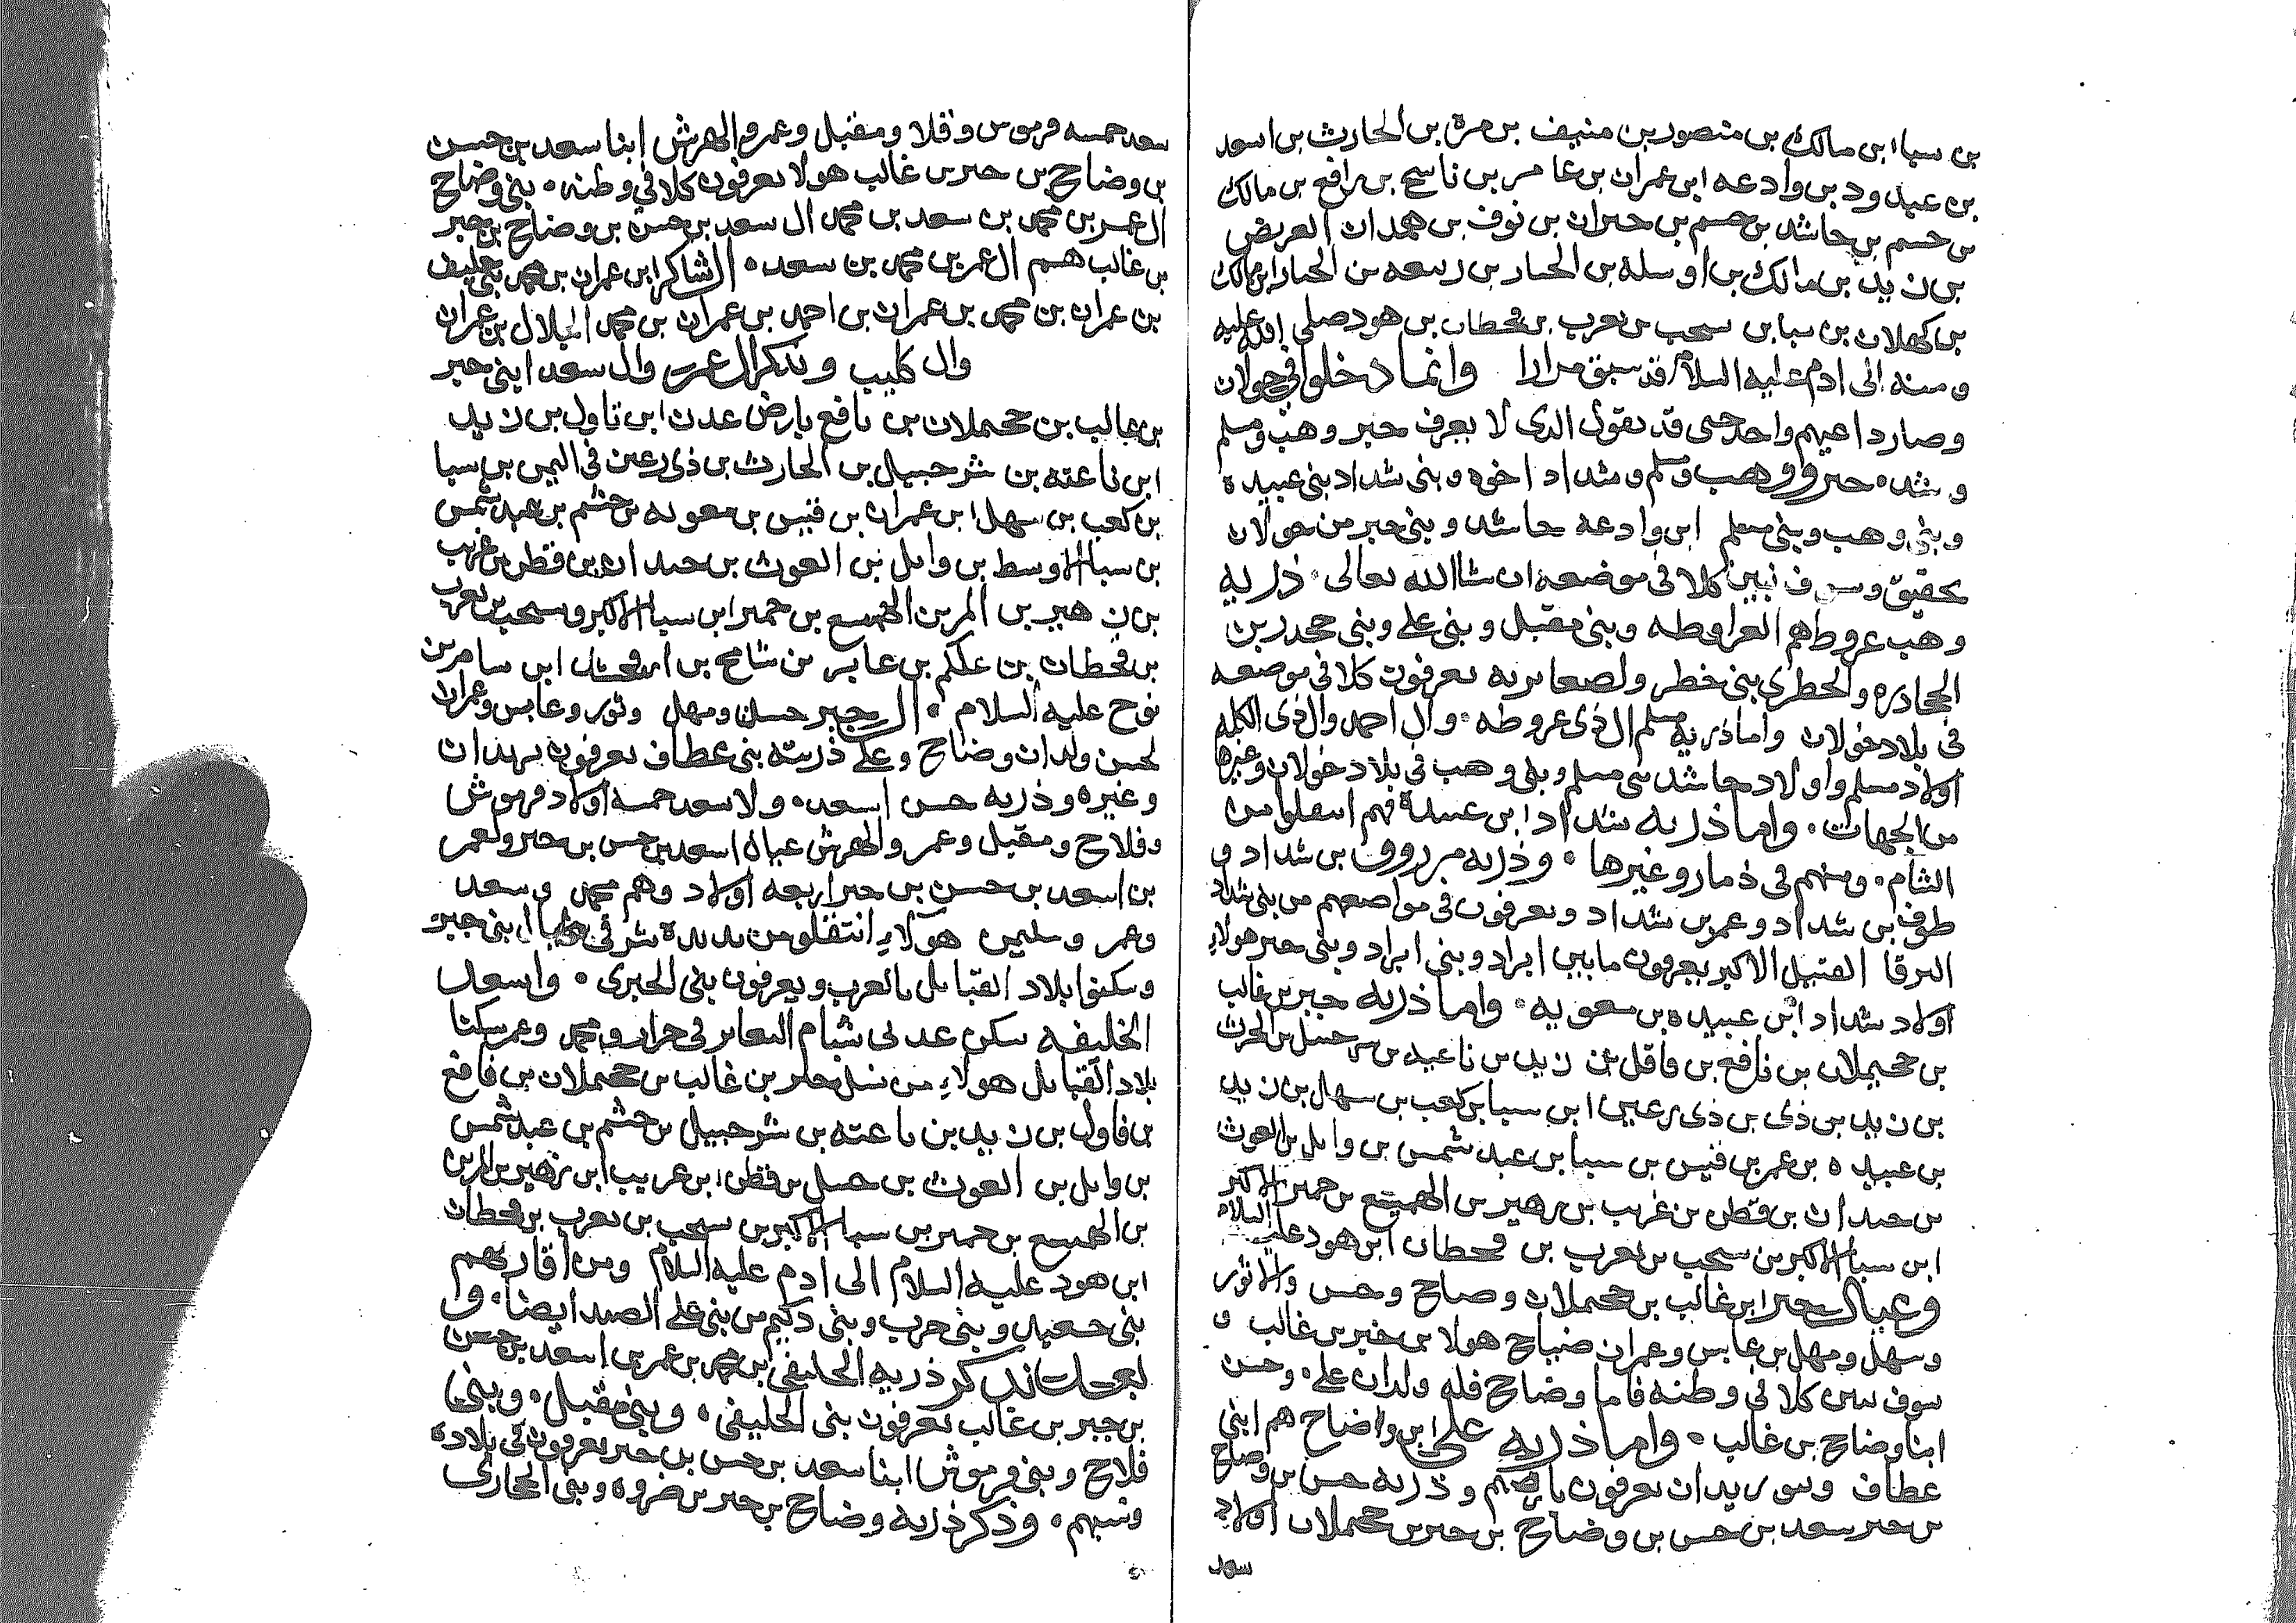 بن سبا ابن مالك بن منصور بن منيف بن مرة بن الحارث بن اسعد
بن عبد ود بن وادعه ابن عمران بن عامر بن ناسح بن رافع بن مالك
بن جسم بن حاشد بن جسم بن حبران بن نوف بن همدان العريض
بن زيد بن مالك بن اوسله بن الخيار بن ربيعه بن الخيار ابن مالك
بن كهلان بن سبا بن سحب بن يعرب بن قحطان بن هود صلى الله عليه
ومنه الى ادم عليه السلام قد سبق مرارا وانما دخلوا في خولان
وصار داعيهم واحد حتى قد يقول الذى لا يعرف جبر وهب ومسلم
وشد. جبر ووهب ومسلم وشداد اخوه وبنى شداد بنى عبيدة
وبنى وهب وبنى مسلم ابن وادعه حاشد وبنى جبر من خولان
تحقيق وسوف نبين كلا فى موضعه ان شاالله تعالى. ذريه
وهب عروطهم العراوطه وبنى مقبل وبنى على وبنى جحدر بن
الجحادره والخطرى بنى خطر ولصعابريه يعرفون كلا فى موضعه
فى بلاد خولان واما ذريه مسلم ال ذى عروطه. وال احمد وال ذى الكله
اولاد مسلم واولاد حاشد بنى مسلم وبنى وهب فى بلاد خولان وغيرها
من الجهات. واما ذريه شداد ابن عبيدة فهم انتقلوا من
الشام. ومنهم فى ذمار وغيرها. وذريه مرزوق بن شداد و
طوق بن شداد وعمر بن شداد ويعرفون فى مواضعهم من بنى شداد
البرقا القبيل الاكبر يعرفون مابين ابراد وبنى ابراد وبنى جبر هولاء
اولاد شداد ابن عبيده بن معويه. واما ذريه جبر بن غالب
بن جحيملان بن نافع بن فاقل بن زيد بن ناعبه بن شرحبيل بن الحرث
بن زيد بن ذى بن ذى رعين ابن سبا بن كعب بن سهل بن زيد
بن عبيده بن عمر بن قيس بن سبا بن عبد شمس بن وايل بن الغوث
بن حيدان بن قطن بن غريب بن زهير بن الهميع بن حمير الاكبر
ابن سبا الاكبر بن سحب بن يعرب بن قحطان ابن هود عليه السلام
وعيال جبر ابن غالب بن جحملان وضاح وحسن والاثور
وسهل ومهل بن عابس وعمران ضباح هولا بن جبر بن غالب و
سوف نبين كلا فى وطنه فاما وضاح فله ولدان على. وحسن
ابنا وضاح بن غالب. واما ذريه على ابن واضاح هم ابنى
عطاف وسوريدان يعرفون بارضهم وذريه حسن بن وضاح
بن جبر سعد بن حسن بن وضاح بن جبر بن جحملان اولاد
سعد
سعد خمسه فرموش وفلا ومقبل وعمر والهرش ابنا سعد بن حسن
بن وضاح بن جبر بن غالب هولا يعرفون كلا في وطنه. بنى وضاح
ال عمر بن محمد بن سعد بن محمد ال سعد بن حسن بن وضاح بن جبر
بن غالب هم ال عمر بن محمد بن سعد. ال شاكر ابن عمران بن محمد بنى خليف
بن عمران بن محمد بن عمران بن احمد بن عمران بن محمد الجلال بن عمران
وال كليب ونذكر ال عمر وال سعد ابنى جبر
بن غالب بن جحملان بن نافع بارض عدن ابن تاول بن زيد
ابن ناعته بن شرحبيل بن الحارث بن ذى رعين فى اليمن بن سبا
بن كعب بن سهل ابن عمران بن قيس بن معويه بن جشم بن عبد شمس
بن سبا الاوسط بن وايل بن الغوث بن حيدان بن قطن بن غريب
بن زهير بن المر بن الهميسع بن حمير ابن سبا الاكبر وسحب بن يعرب
بن قحطان بن علكم بن عابر بن شامخ بن ارفخشد ابن سام بن
نوح عليه السلام. ال جبر حسن ومهل وثور وعابس وعمران
لحسن ولدان وضاح وعلى ذريته بنى عطاف يعرفون بهمدان
وغيره وذريه حسن اسعد. ولاسعد خمسه اولاد فرموش
وفلاح ومقبل وعمر والهرش عيال اسعد بن حسن بن جبر ولعمر
بن اسعد بن حسن بن جبر اربعه اولاد وهم محمد وسعد
وعمر وسليمن هولاء انتقلو من بدبدة شرقى ابنى جبر
وسكنوا بلاد القبايل بالعرب ويعرفون بنى الجبرى. واسعد
الخليفه سكن عدنى شبام اليعابر فى حراز ومحمد وعمر سكنا
بلاد القبايل هولاء من نسل جبر بن غالب بن جحملان بن فافع
بن فاول بن زيد بن ناعته بن شرحبيل بن جشم بن عبد شمس
بن وايل بن الغوث بن حسل بن قطن ابن عريب ابن زهير بن المر بن
بن الهميسع بن حمير بن سبا الاكبر بن سحب بن يعرب بن قحطان
ابن هود عليه السلام الى ادم عليه السلام ومن اقاربهم
بنى سعيد وبنى حرب وبنى دكيم من بنى على الصيد ايضا. و
نذكر ذريه الخليفى بن محمد بن عمر بن اسعد بن حسن
بن جبر بن غالب يعرفون بنى الخليفى. وبنى مقبل. وبنى
فلاح وبنى فرموش ابنا سعد بن حسن بن جبر يعرفون فى بلاده
ونسبهم. وذكر ذريه وضاح بن جبر بن ضروه وبنى الحجازى